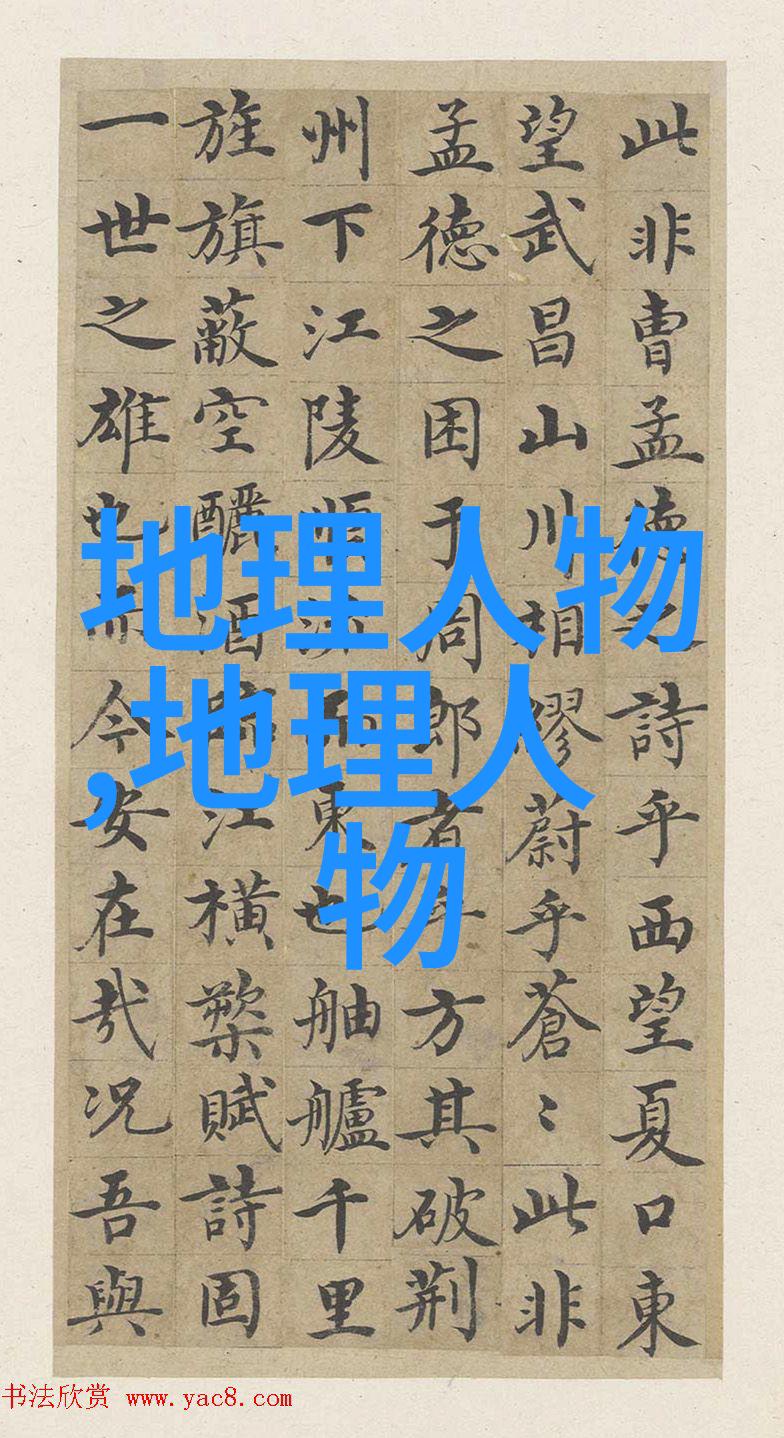 此非曹孟德之詩乎西望夏口東
望武昌山川相繆蔚乎蒼〻此非
孟德之困于周郎者乎方其破荆
州下江陵順流東也舳艫千里
旌旗蔽空釃酒江橫槊賦詩固
一世之雄也而今安在哉况吾與
地理人物
,地理人
物
书法欣赏 www.yac8.com